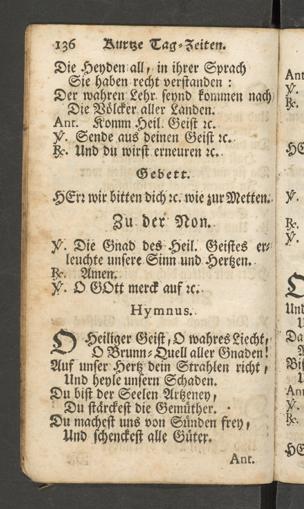 136 Kurtze Tag-Zeiten.
Die Heyden all, in ihrer Sprach
Sie haben recht verstanden:
Der wahren Lehr seynd kommen nach
Die Völcker aller Landen.
Ant. Komm Heil. Geist ꝛc.
℣. Sende aus deinen Geist ꝛc.
℟. Und du wirst erneuren ꝛc.
Gebett.
HErr wir bitten dich ꝛc. wie zur Metten.
Zu der Non.
℣. Die Gnad des Heil. Geistes er-
leuchte unsere Sinn und Hertzen.
℟. Amen.
℣. O GOtt merck auf ꝛc.
Hymnus.
O Heiliger Geist, O wahres Liecht,
O Brunn-Quell aller Gnaden!
Auf unser Hertz dein Strahlen richt,
Und heyle unsern Schaden.
Du bist der Seelen Artzeney,
Du stärckest die Gemüther.
Du machest uns von Sünden frey,
Und schenckest alle Güter.
Ant.